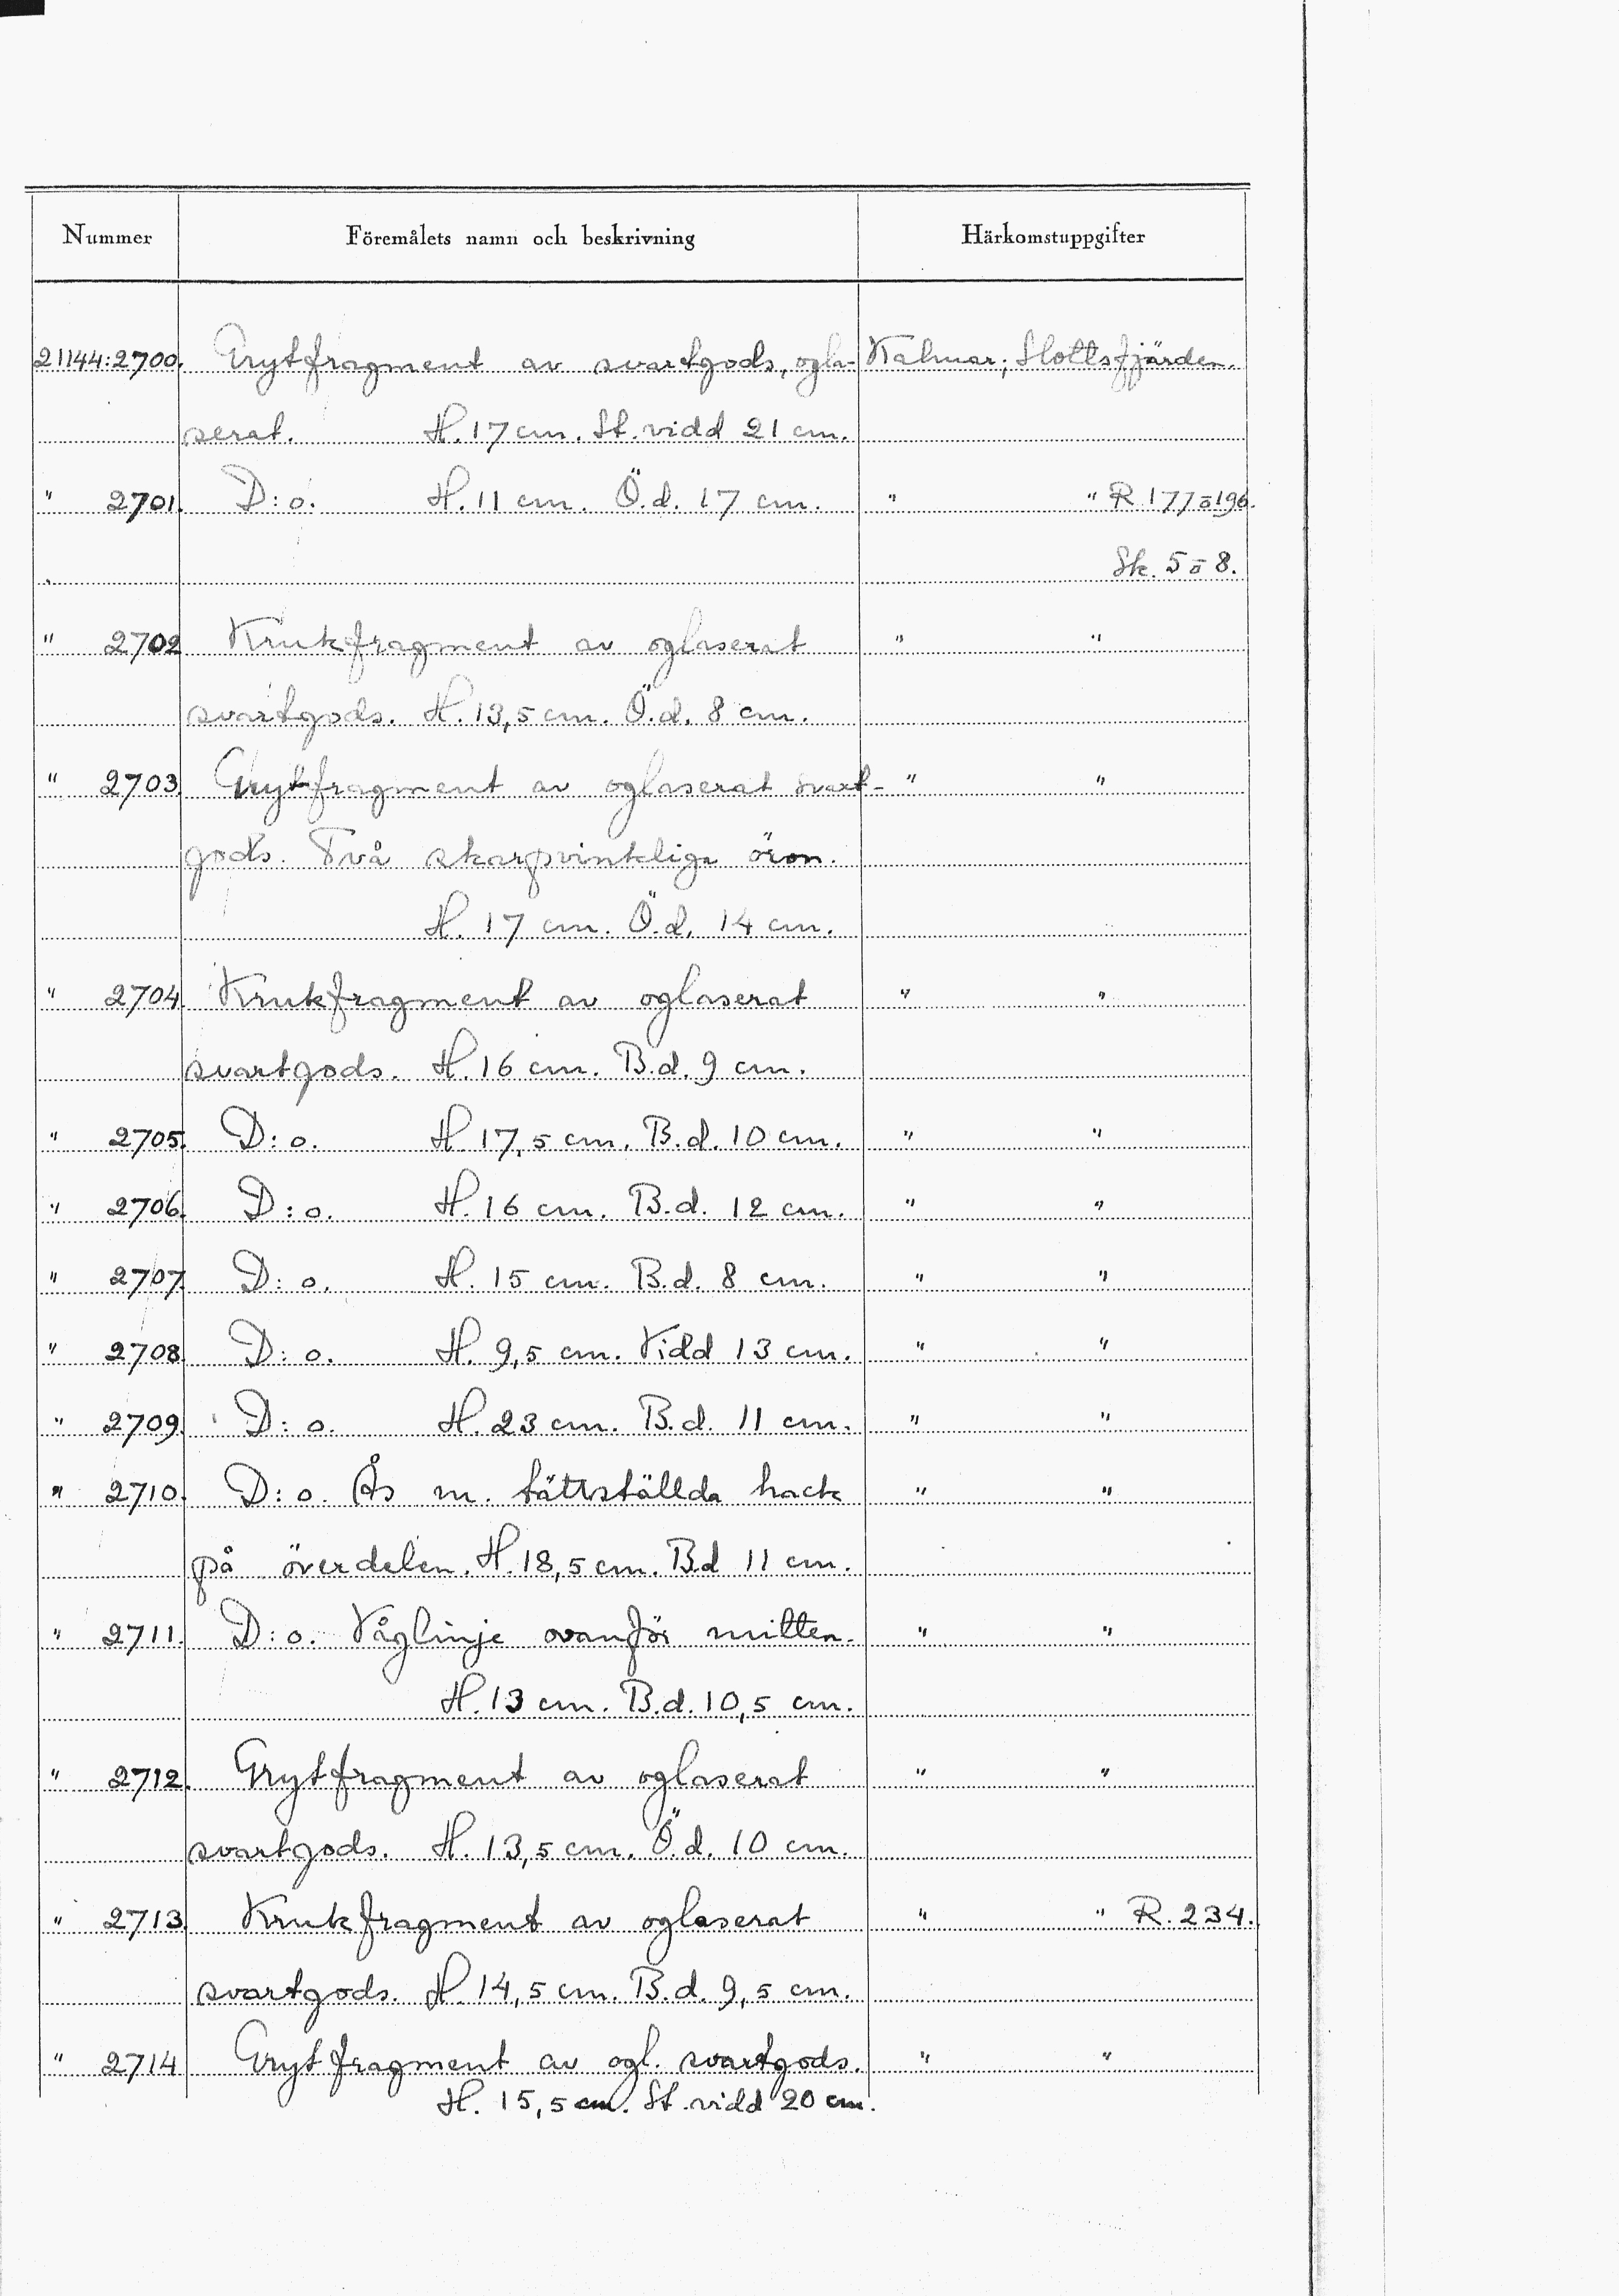 Nummer Föremålets namn och beskrivning Härkomstuppgifter
21144:2700. Grytfragment av svartgods, ogla- Kalmar; Slottsfjärden.
serat. H. 17 cm. St. vidd 21 cm.
" 2701. D:o. H. 11 cm. Ö.d. 17 cm. " " R 177 o 196.
Sk. 5 o 8.
" 2702 Krukfragment av oglaserat " "
svartgods. H. 13,5 cm. Ö.d. 8 cm.
" 2703. Grytfragment av oglaserat svart- " "
gods. Två skarpvinkliga öron.
H. 17 cm. Ö.d. 14 cm.
" 2704. Krukfragment av oglaserat " "
svartgods. H. 16 cm. B.d. 9 cm.
" 2705. D:o. H. 17,5 cm. B.d. 10 cm. " "
" 2706. D:o. H. 16 cm. B.d. 12 cm. " "
" 2707. D:o. H. 15 cm. B.d. 8 cm. " "
" 2708. D:o. H. 9,5 cm. Vidd 13 cm. " "
" 2709. D:o. H. 23 cm. B.d. 11 cm. " "
" 2710. D:o. Ås m. tättställda hack " "
på överdelen. H. 18,5 cm. B.d 11 cm.
" 2711. D:o. Våglinje ovanför mitten. " "
H. 13 cm. B.d. 10,5 cm.
" 2712. Grytfragment av oglaserat " "
svartgods. H. 13,5 cm. Ö.d. 10 cm.
" 2713. Krukfragment av oglaserat " " R. 234.
svartgods. H. 14,5 cm. B.d. 9,5 cm.
" 2714 Grytfragment av ogl. svartgods. " "
H. 15,5 cm. St. vidd 20 cm.